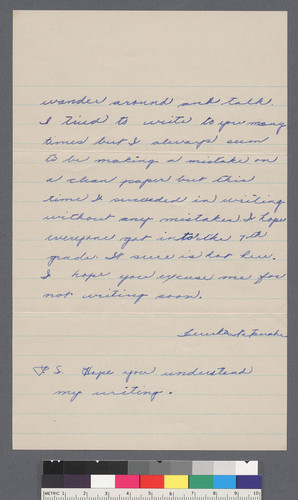 wander around and talk.
I tried to write to you many
times but I always seem
to be making a mistake on
a clean paper but this
time I succeeded in writing
without any mistakes. I hope
everyone got into the 7th
grade. It sure is hot here.
I hope you excuse me for
not writing soon.
P.S. Hope you understand
my writing.
METRIC 1 2 3 4 5 6 7 8 9 10